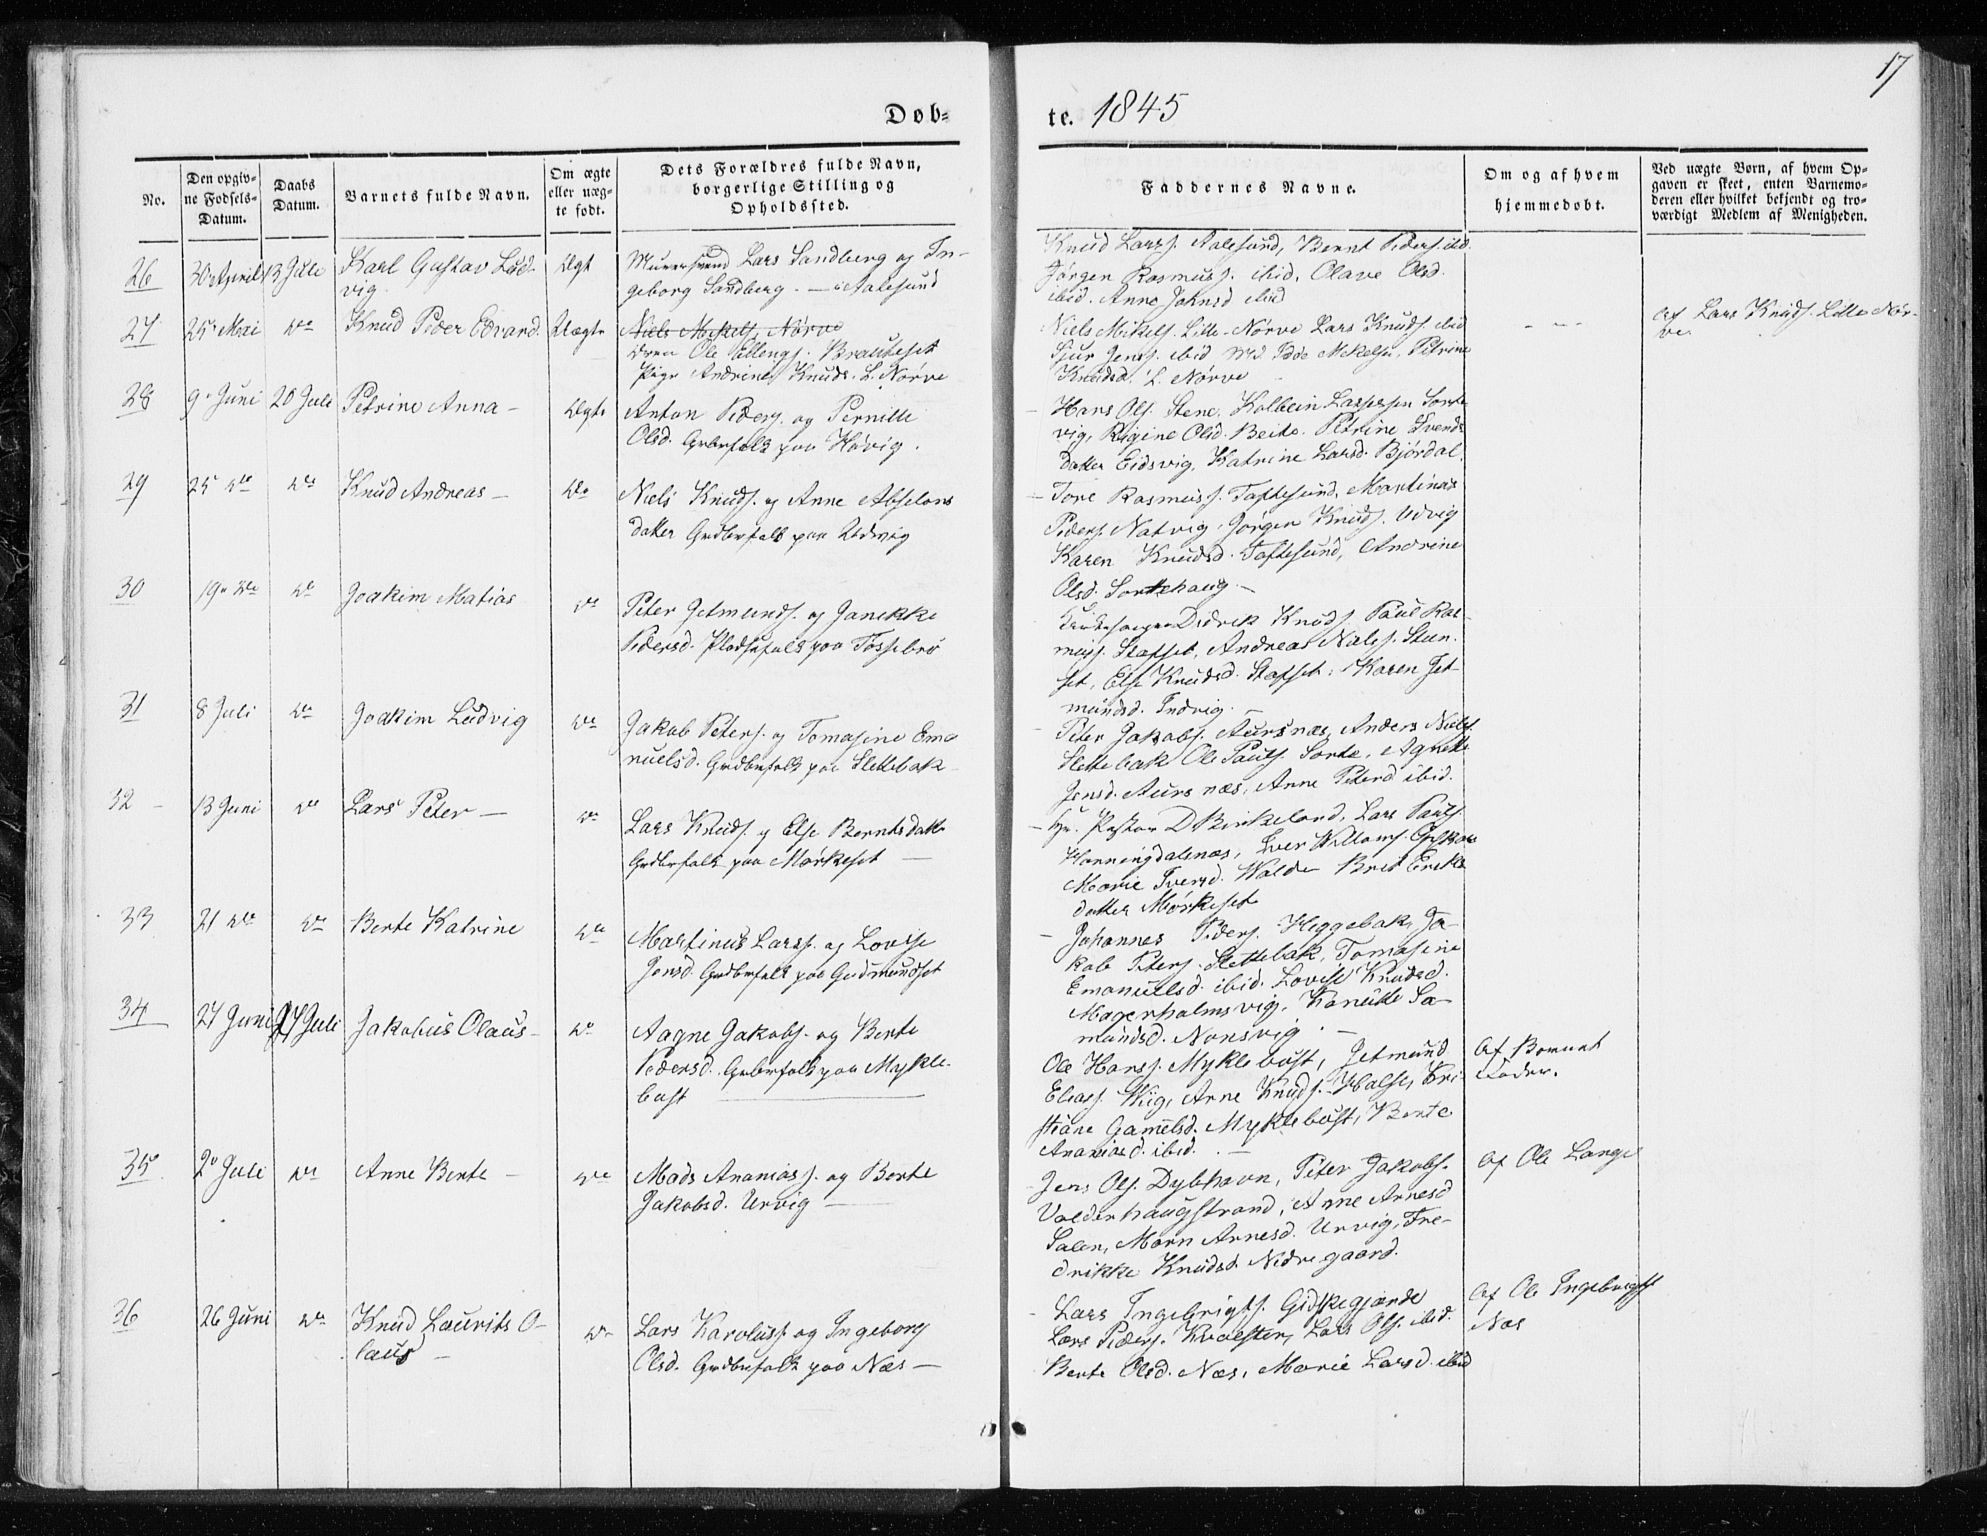 17
Døb-
te. 1845
No.
Den opgiv-
ne Fødsels-
Datum.
Daabs
Datum.
Barnets fulde Navn.
Om ægte
eller uæg-
te født.
Dets Forældres fulde Navn,
borgerlige Stilling og
Opholdssted.
Faddernes Navne.
Om og af hvem
hjemmedøbt.
Ved uægte Børn, af hvem Op-
gaven er skeet, enten Barnemo-
deren eller hvilket bekjendt og tro-
værdigt Medlem af Menigheden.
26 30 April 13 Julie Karl Gustav Lud-
vig
Ægt
Murersvend Lars Sandberg og In-
geborg Sandberg - i Aalesund
Knud Larss. Aalesund, Bernt Peders. ibd.
Jørgen Rasmuss. ibid. Olave Olsd.
ibid. Anne Johnsd ibid
27 25 Mai do Knud Peder Edvard. Uægte
Niels Mikels. Nørve
Ole Ellengs. Brauteset
Pige Andrine Knuds. L. Nørve
Niels Mikels. Lille-Nørve Lars Knuds ibid
Sjur Jenss. ibid Mikels. Petrine
Knudsd. L. Nørve
Af Lars Knuds. Lille Nør-
ve.
28 9 Juni 20 Juli Petrine Anna - Ægte
Anton Peders. og Pernille
Olsd. Grdbrfolk paa Høvig.
Hans Ols. Stene, Kolbein Lasses Sorte
vig, Regine Olsd. Beite. Petrine Svends
datter Eidsvig, Katrine Larsd. Bjørdal.
29 25 do do Knud Andreas - do
Niels Knuds. og Anne Abselons
datter Grdbrfolk paa Udvig
Tore Rasmuss. Toftesund, Martinus
Peders. Natvig, Jørgen Knuds. Udvig
Karen Knudsd. Toftesund, Andrine
Olsd. Sortehaug -
30 19 do do Joakim Matias do
Peter Jetmunds. og Janikke
Pedersd. Pladsefolk paa Fossebrø
Didrik Knuds. Paul Ras-
muss. Stafset, Andreas Niels. Steen-
set, Else Knudsd. Stafset, Karen Jet-
mundsd. Indvig. -
31 8 Juli do Joakim Ludvig do
Jakob Peters. og Tomasine Ema
nuelsd. Grdbrfolk paa Slettebak
Peter Jakobs. Aursnæs, Anders Niels.
Slettebak Ole Pauls. Sorte, Agnette
Jensd. Aursnæs, Anne Petersd ibid.
32 - 13 Juni do Lars Peter - do
Lars Knuds. og Else Berntsdatter
Grdbrfolk paa Mørkeset -
Hr. Pastor D Birkeland, Lars Pauls.
Honningdalsnæs, Iver Willoms. Giskøe
Marie Iversd. Walde Brit Eriks
datter Mørkeset
33 21 do do Berte Katrine do
Martinus Larss. og Lovise
Jensd. Grdbrfolk paa Gudmundset
Johannes Peders. Heggebak, Ja-
kob Peters. Slettebak, Tomasine
Emanuelsd. ibid. Lovise Knudsd.
Magerholmsvig, Kanutte Sa-
mundsd. Nonsvig. -
34 24 Juni 27 Juli Jakobus Olaus - do
Aagne Jakobs. og Berte
Pedersd. Grdbrfolk paa Mykle-
bust
Ole Hanss. Myklebust, Jetmund
Eliass. Wiig, Arne Knuds. Halse, Kri-
stiane Gamelsd. Myklebust, Berte
Ananiasd. ibid. -
Af Barnets
Fader.
35 2 Juli do Anne Berte - do
Mads Ananiass. og Berte
Jakobsd. Urvig -
Jens Ols. Dybhavn, Peter Jakobs.
Valderhaugstrand, Anne Arnesd
Salen, Marn Arnesd. Urvig, Fre-
drikke Knudsd. Nedregaard.
Af Ole Lange
36 26 Juni do Knud Laurits O-
laus -
do
Lars Karoluss. og Ingeborg
Olsd. Grdbrfolk paa Næs -
Lars Ingebrigts. Gidskegjærde
Lars Peders. Kvalster, Lars Ols. ibid.
Berte Olsd. Næs, Marie Larsd. ibid
Af Ole Ingebrigts
Næs